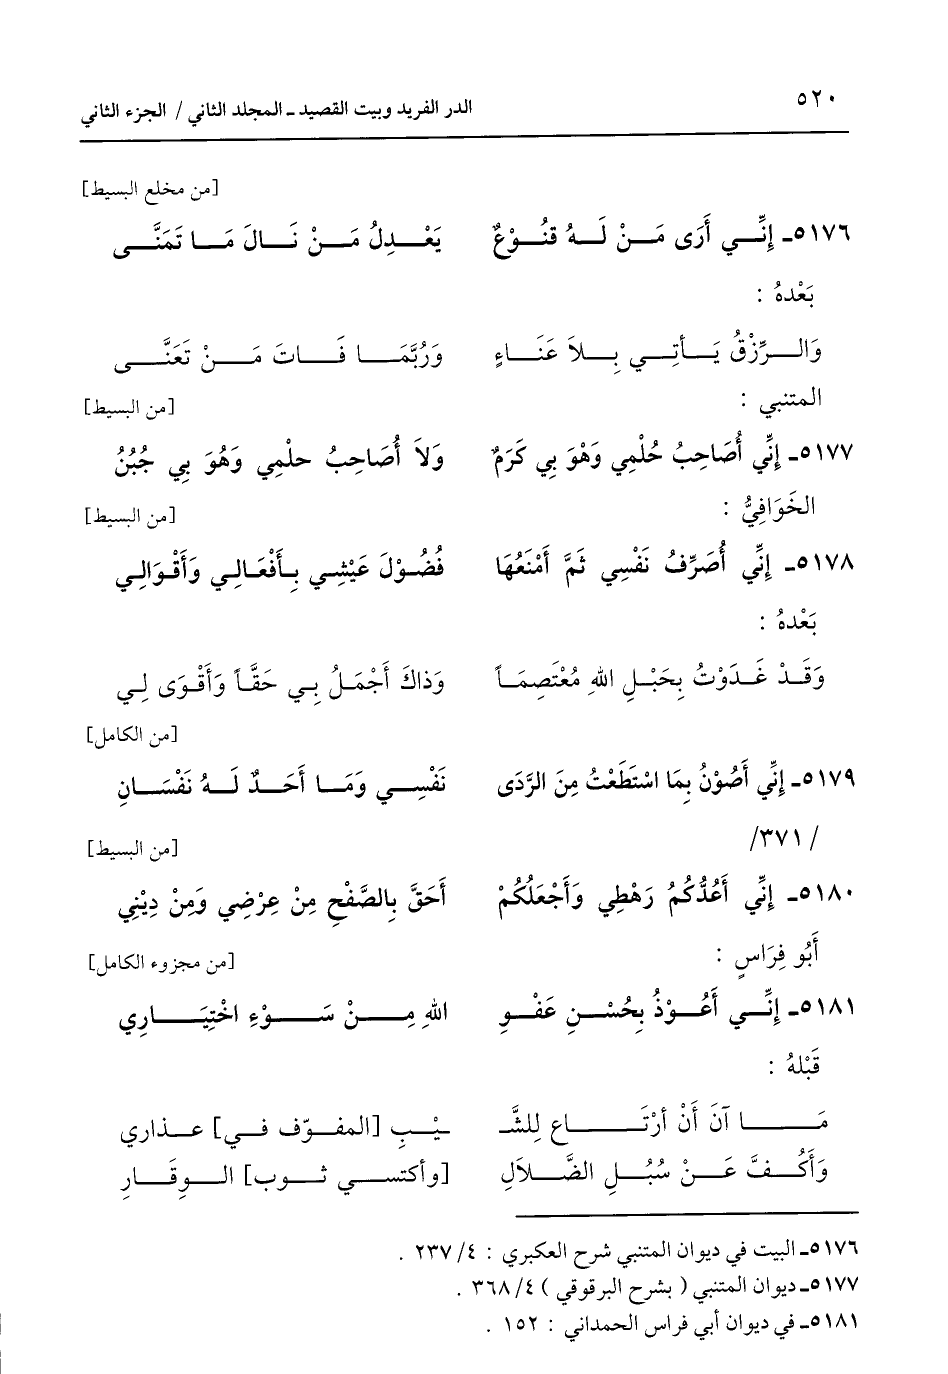 ٥٢٠ الدر الفريد وبيت القصيد ـ المجلد الثاني / الجزء الثاني
[من مخلع البسيط]
٥١٧٦ـ إِنِّي أَرَى مَنْ لَهُ قنُوْعٌ يَعْدِلُ مَنْ نَالَ مَا تَمَنَّى
بَعْدهُ :
وَالرِّزْقُ يَأتِي بِلاَ عَنَاءٍ وَرُبَّمَا فَاتَ مَنْ تَعَنَّى
المتنبي : [من البسيط]
٥١٧٧ـ إِنِّي أُصَاحِبُ حُلْمِي وَهْوَ بِي كَرَمٌ وَلاَ أُصَاحِبُ حلْمِي وَهُوَ بِي جُبُنُ
الخَوَافِيُّ : [من البسيط]
٥١٧٨ـ إِنِّي أُصَرِّفُ نَفْسِي ثَمَّ أَمْنَعُهَا فُضُوْلَ عَيْشِي بِأَفْعَالِي وَأَقْوَالِي
بَعْدهُ :
وَقَدْ غَدَوْتُ بِحَبْلِ اللهِ مُعْتَصِمَاً وَذاكَ أَجْمَلُ بِي حَقَّاً وَأَقْوَى لِي
[من الكامل]
٥١٧٩ـ إِنِّي أَصُوْنُ بِمَا اسْتَطَعْتُ مِنَ الرَّدَى نَفْسِي وَمَا أَحَدٌ لَهُ نَفْسَانِ
/٣٧١/
[من البسيط]
٥١٨٠ـ إِنِّي أَعُدُّكُمُ رَهْطِي وَأَجْعَلُكُمْ أَحَقَّ بِالصَّفْحِ مِنْ عِرْضِي وَمِنْ دِيْنِي
أَبُو فِرَاسٍ : [من مجزوء الكامل]
٥١٨١ـ إِنِّي أَعُوْذُ بِحُسْنِ عَفْوِ اللهِ مِنْ سَوْءِ اخْتِيَارِي
قَبْلهُ :
مَا آنَ أَنْ أرْتَاع لِلشَّـ ـيْبِ [المفوّف في] عذاري
وَأَكُفَّ عَنْ سُبُلِ الضَّلاَلِ [وأكتسي ثوب] الوِقَارِ
٥١٧٦ـ البيت في ديوان المتنبي شرح العكبري : ٤/ ٢٣٧ .
٥١٧٧ـ ديوان المتنبي ( بشرح البرقوقي ) ٤/ ٣٦٨ .
٥١٨١ـ في ديوان أبي فراس الحمداني : ١٥٢ .